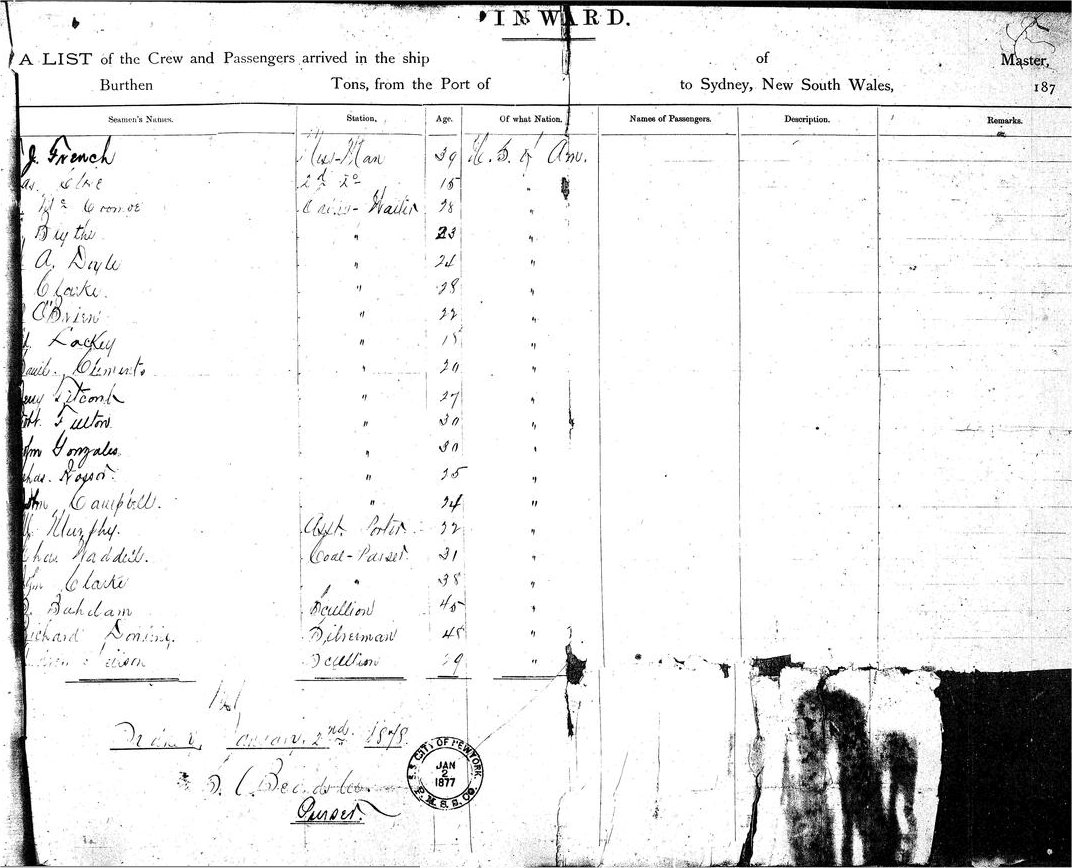 INWARD.
A LIST of the Crew and Passengers arrived in the ship of Master,
Burthen Tons, from the Port of to Sydney, New South Wales, 187
Seamen's Names. Station. Age. Of what Nation. Names of Passengers. Description. Remarks.
J. French Mess-Man 39 U. S. of Am.
2d Do 15 "
Waiter 28 "
Blythe " 23 "
A. Doyle " 24 "
Clarke. " 28 "
O'Brien " 22 "
Lackey " 18 "
Clements. " 20 "
Titcomb " 27 "
Fulton " 30 "
Gonzales " 30 "
" 25 "
Campbell. " 24 "
Murphy. Asst. Porter 22 "
Coal-Passer. 31 "
Clarke " 38 "
Scullion 45 "
Richard Silverman 45 "
Scullion 29 "
Sydney, January 2nd 1878.
Purser.
S.S. CITY OF NEW YORK.
JAN
2
1877
P. M. S. S. CO.